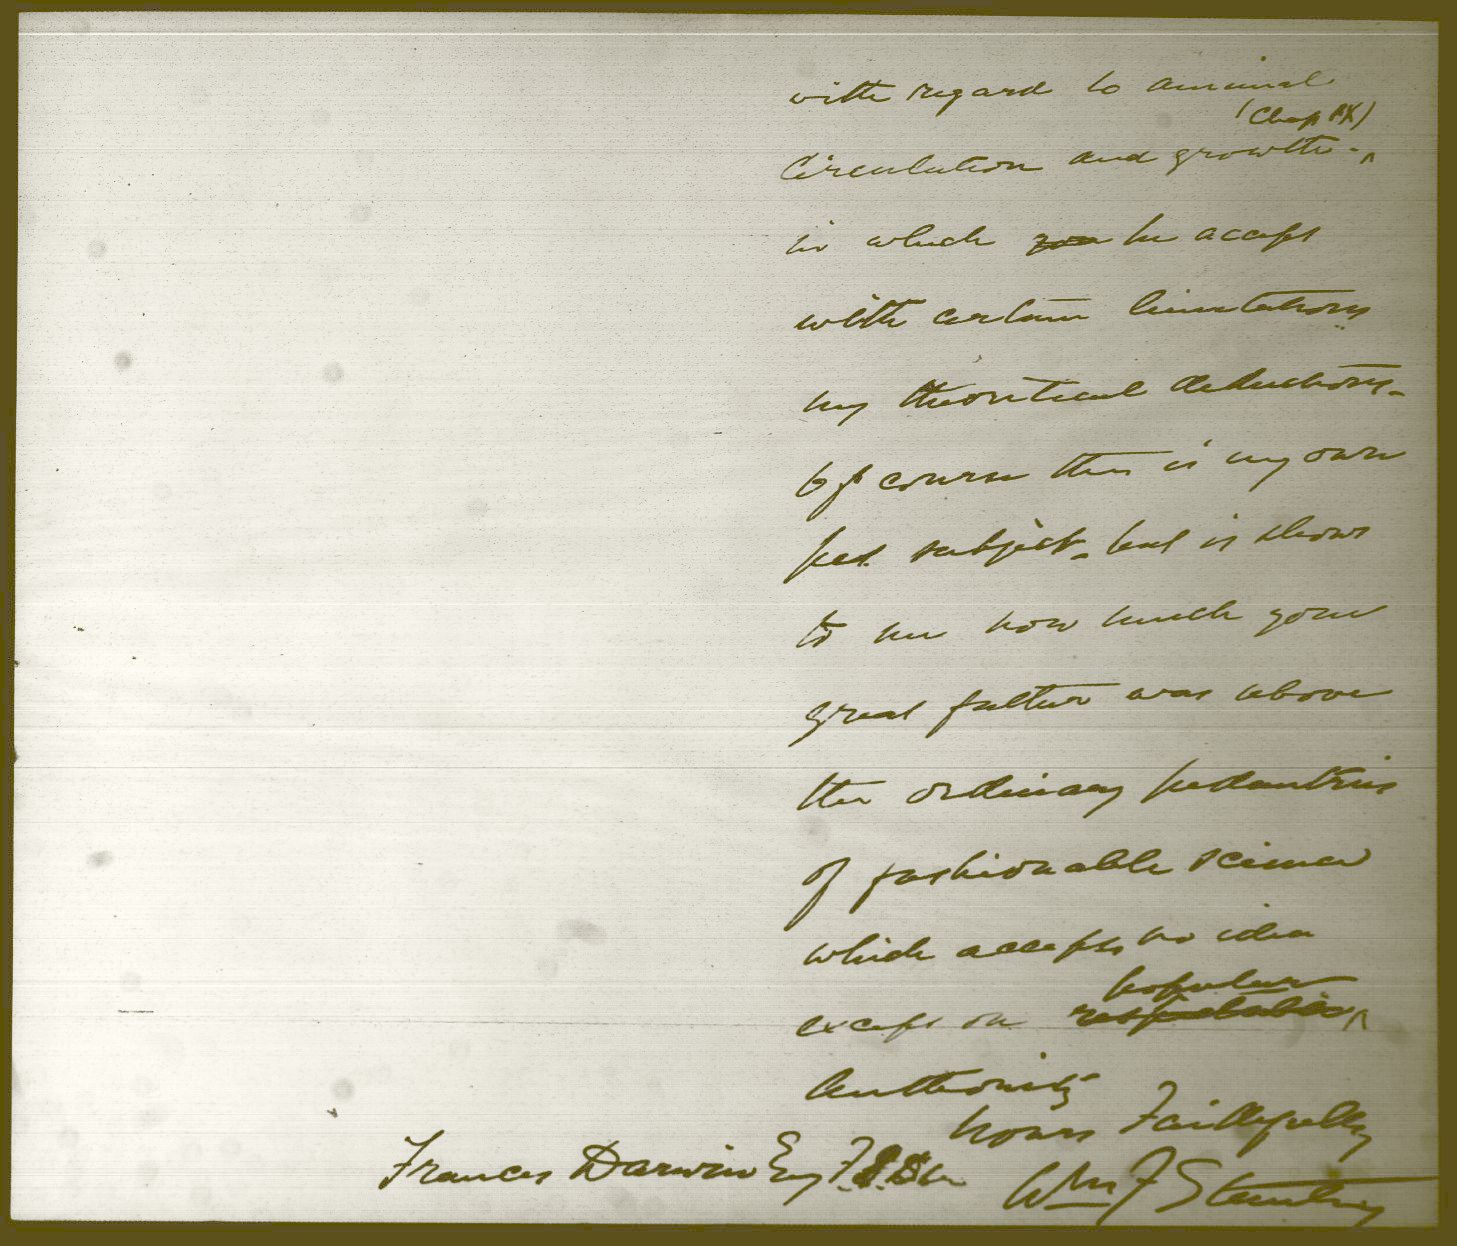 with regard to animal
(Chap IX)
Circulation and growth - ^
in which you he accept
with certain limitations
my theoretical deductions -
Of course this is my own
pet subject - but it shows
to me how much your
great father was above
the ordinary pedantries
of fashionable science
which accepts no idea
popular
except on respectable ^
authority
Yours Faithfully
Frances Darwin Esq F.
Wm F Stanley